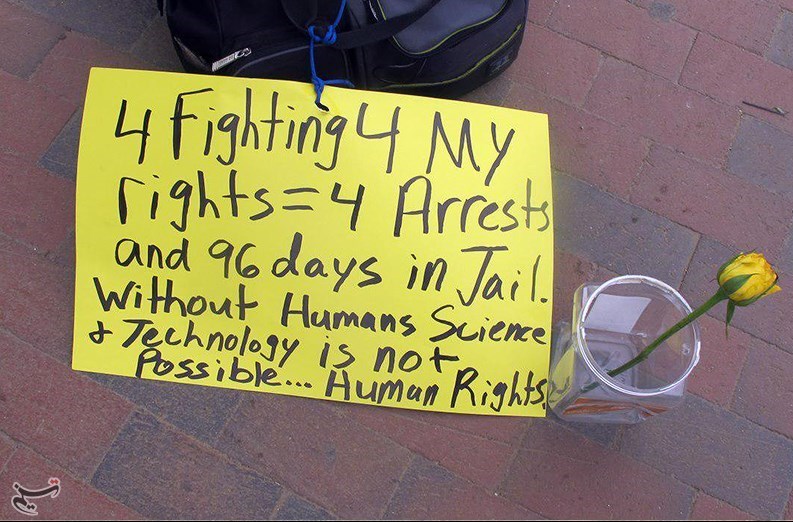 4 Fighting 4 My
rights = 4 Arrests
and 96 days in Jail.
Without Humans Science
& Technology is not
Possible... Human Rights.
تسنیم